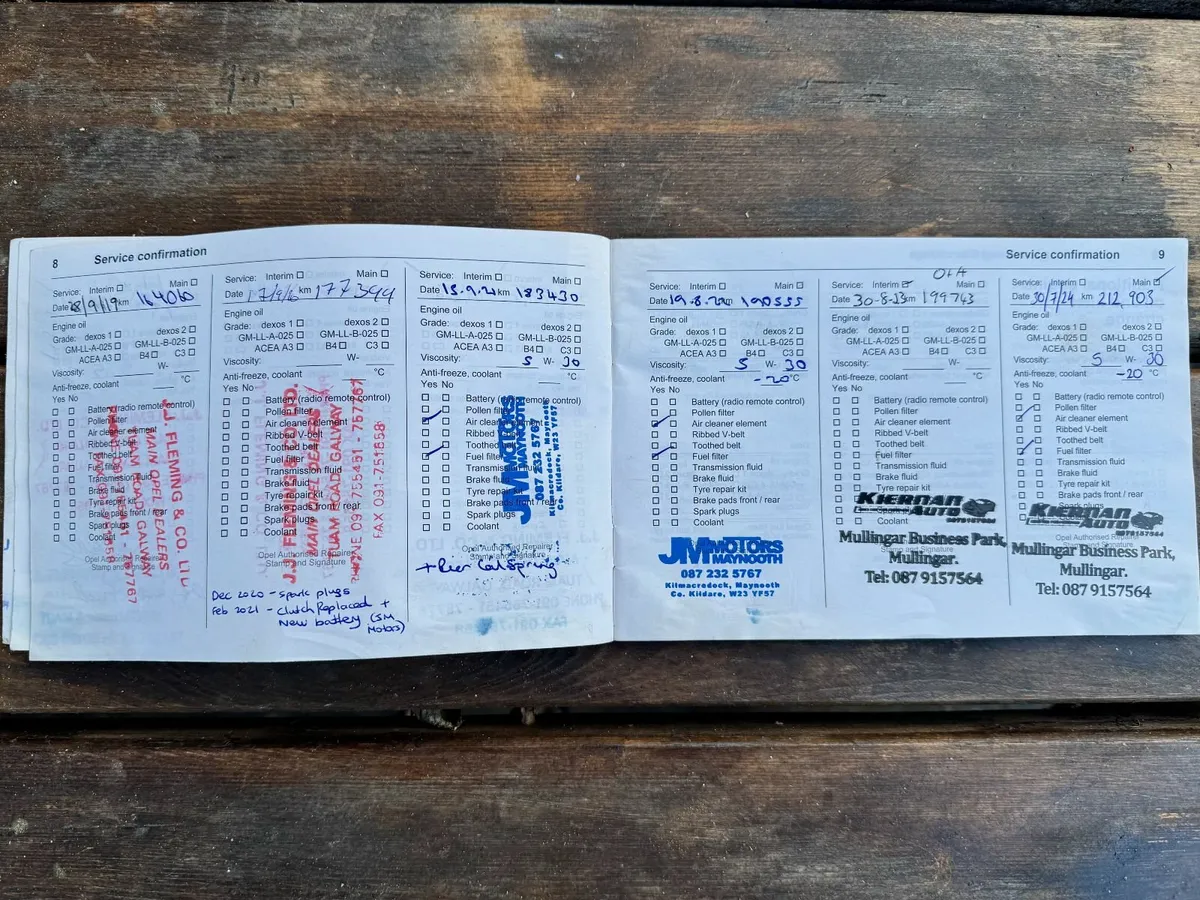 8 Service confirmation
Service: Interim Main
Date 28/9/19 km 164060
Engine oil
Grade: dexos 1 dexos 2
GM-LL-A-025 GM-LL-B-025
ACEA A3 B4 C3
Viscosity: W-
Anti-freeze, coolant °C
Yes No
Battery (radio remote control)
Pollen filter
Air cleaner element
Ribbed V-belt
Toothed belt
Fuel filter
Transmission fluid
Brake fluid
Tyre repair kit
Brake pads front / rear
Spark plugs
Coolant
Opel Authorised Repairer
Stamp and Signature
J.J. FLEMING & CO. LTD.
MAIN OPEL DEALERS
TUAM ROAD, GALWAY
Service: Interim Main
Date km 177399
Engine oil
Grade: dexos 1 dexos 2
GM-LL-A-025 GM-LL-B-025
ACEA A3 B4 C3
Viscosity: W-
Anti-freeze, coolant °C
Yes No
Battery (radio remote control)
Pollen filter
Air cleaner element
Ribbed V-belt
Toothed belt
Fuel filter
Transmission fluid
Brake fluid
Tyre repair kit
Brake pads front / rear
Spark plugs
Coolant
Opel Authorised Repairer
Stamp and Signature
J.J. FLEMING & CO. LTD.
MAIN OPEL DEALERS
TUAM ROAD, GALWAY
PHONE 091-755451 - 757767
FAX 091-751558
Dec 2020 - spark plugs
Feb 2021 - clutch Replaced +
New battery (JM
Motors)
Service: Interim Main
Date 15.9.21 km 183430
Engine oil
Grade: dexos 1 dexos 2
GM-LL-A-025 GM-LL-B-025
ACEA A3 B4 C3
Viscosity: 5 W- 30
Anti-freeze, coolant °C
Yes No
Battery (radio remote control)
Pollen filter
Air cleaner element
Ribbed V-belt
Toothed belt
Fuel filter
Transmission fluid
Brake fluid
Tyre repair kit
Brake pads front / rear
Spark plugs
Coolant
Opel Authorised Repairer
Stamp and Signature
JM MOTORS
MAYNOOTH
087 232 5767
Kilmacredock, Maynooth
Co. Kildare, W23 YF57
+ Rear Coil Spring
Service confirmation 9
Service: Interim Main
Date 19.8.22 km 190555
Engine oil
Grade: dexos 1 dexos 2
GM-LL-A-025 GM-LL-B-025
ACEA A3 B4 C3
Viscosity: 5 W- 30
Anti-freeze, coolant -20 °C
Yes No
Battery (radio remote control)
Pollen filter
Air cleaner element
Ribbed V-belt
Toothed belt
Fuel filter
Transmission fluid
Brake fluid
Tyre repair kit
Brake pads front / rear
Spark plugs
Coolant
JM MOTORS
MAYNOOTH
087 232 5767
Kilmacredock, Maynooth
Co. Kildare, W23 YF57
Service: Interim Main
Date 30-8-23 km 199743
Engine oil
Grade: dexos 1 dexos 2
GM-LL-A-025 GM-LL-B-025
ACEA A3 B4 C3
Viscosity: W-
Anti-freeze, coolant °C
Yes No
Battery (radio remote control)
Pollen filter
Air cleaner element
Ribbed V-belt
Toothed belt
Fuel filter
Transmission fluid
Brake fluid
Tyre repair kit
Brake pads front / rear
Spark plugs
Coolant
KIERNAN
AUTO
0879157564
Mullingar Business Park,
Mullingar.
Stamp and Signature
Tel: 087 9157564
Service: Interim Main
Date 30/7/24 km 212,903
Engine oil
Grade: dexos 1 dexos 2
GM-LL-A-025 GM-LL-B-025
ACEA A3 B4 C3
Viscosity: 5 W- 30
Anti-freeze, coolant -20 °C
Yes No
Battery (radio remote control)
Pollen filter
Air cleaner element
Ribbed V-belt
Toothed belt
Fuel filter
Transmission fluid
Brake fluid
Tyre repair kit
Brake pads front / rear
Spark plugs
KIERNAN
AUTO
0879157564
Opel Authorised Repairer
Mullingar Business Park,
Mullingar.
Tel: 087 9157564